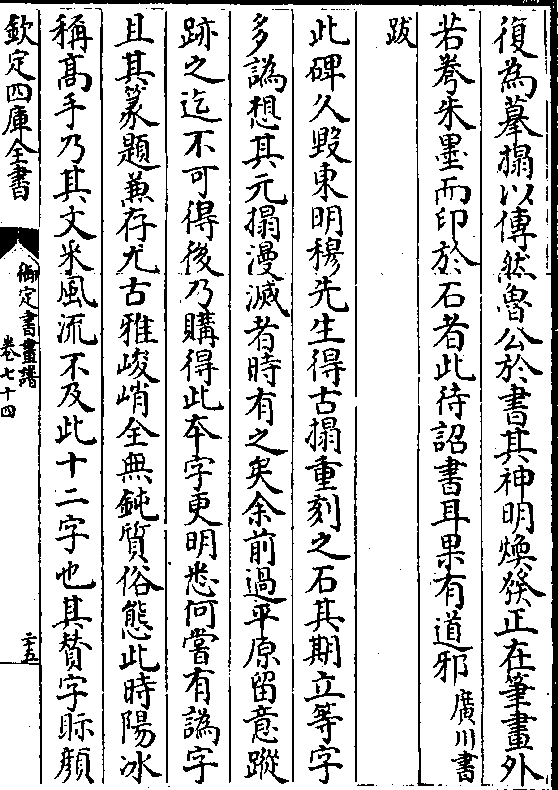 復為摹搨以傳然魯公於書其神明煥發正在筆畫外
若卷朱墨而印於石者此待詔書耳果有道邪廣川書
跋
此碑久毀東明穆先生得古搨重刻之石其期立等字
多譌想其元搨漫滅者時有之矣余前過平原留意蹤
跡之迄不可得後乃購得此本字更明悉何嘗有譌字
且其篆題兼存尤古雅峻峭全無鈍質俗態此時陽冰
稱高手乃其文采風流不及此十二字也其賛字眎顔
欽定四庫全書
御定書畫譜
卷七十四
二十五